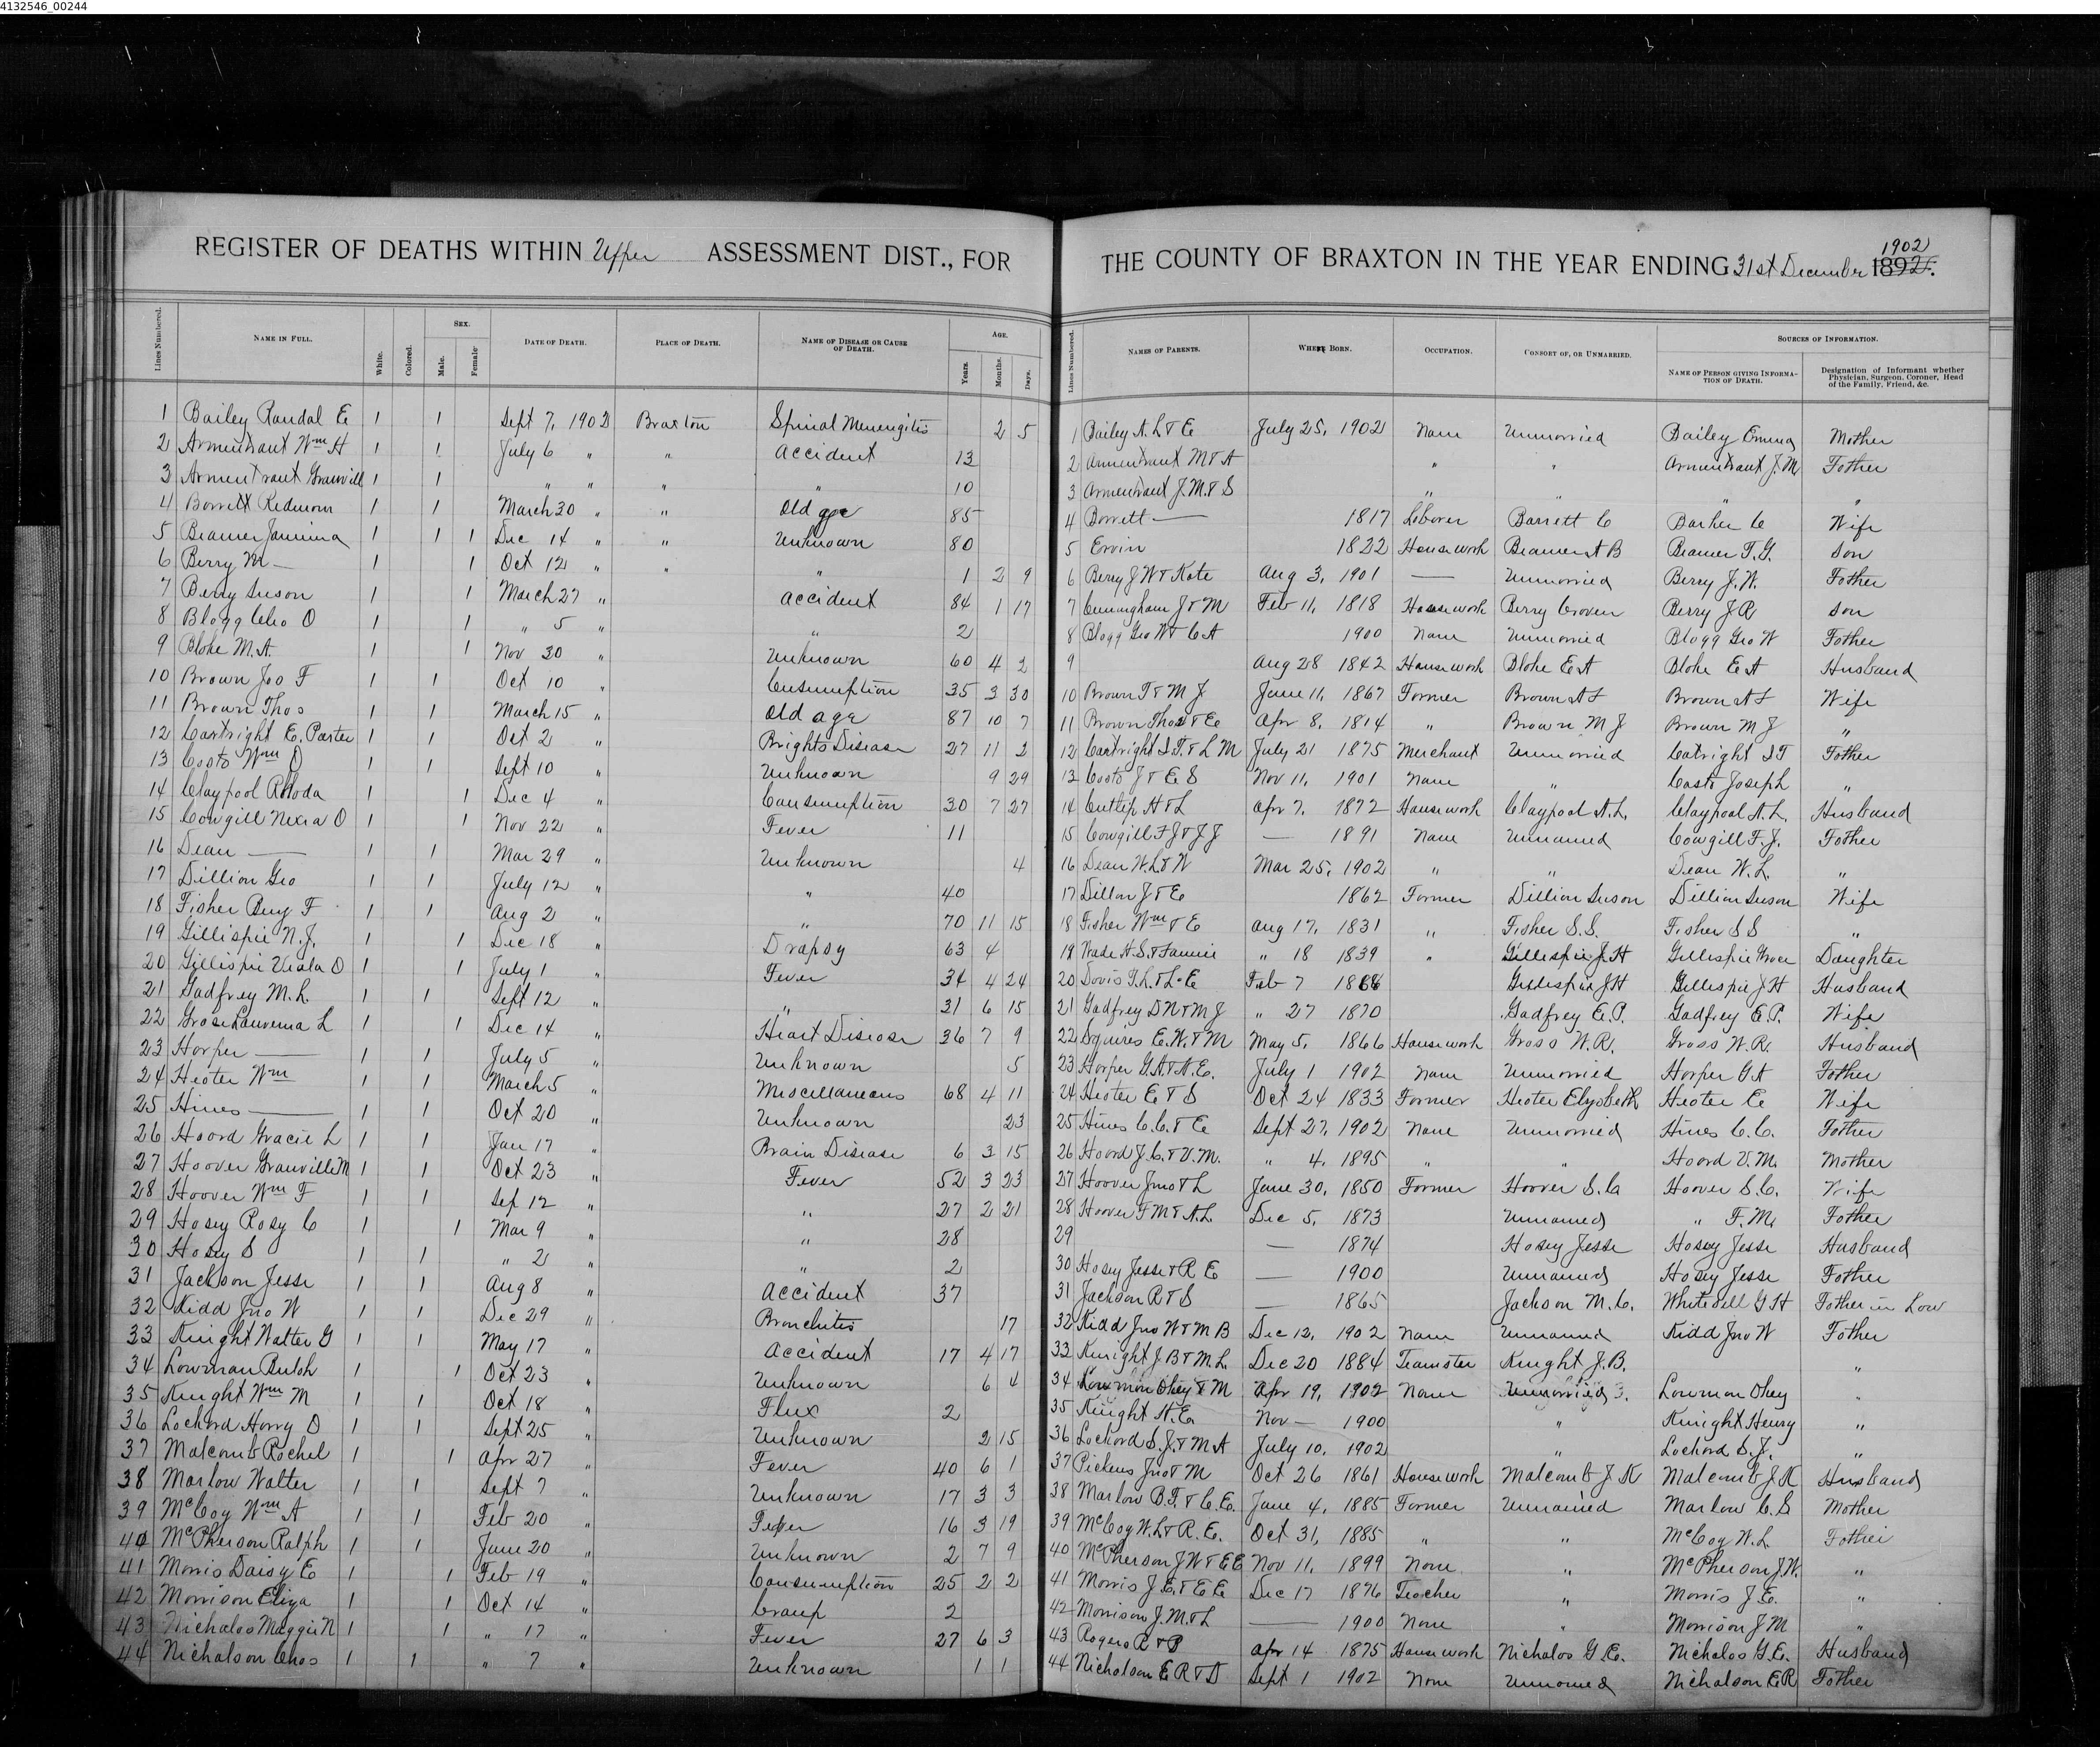 4132546_00244
REGISTER OF DEATHS WITHIN Upper ASSESSMENT DIST., FOR THE COUNTY OF BRAXTON IN THE YEAR ENDING 31st December 1892. 1902
Lines Numbered. NAME IN FULL. White. Colored. SEX. Male. Female DATE OF DEATH. PLACE OF DEATH. NAME OF DISEASE OR CAUSE OF DEATH. AGE. Years. Months. Days. Lines Numbered. NAMES OF PARENTS. WHERE BORN. OCCUPATION. CONSORT OF, OR UNMARRIED. SOURCES OF INFORMATION. NAME OF PERSON GIVING INFORMATION OF DEATH. Designation of Informant whether Physician, Surgeon, Coroner, Head of the Family, Friend, &c.
1 Bailey Randal E 1 1 Sept 7, 1902 Braxton Spinal Menengitis 2 5 1 Bailey A. L & E July 25, 1902 None Unmarried Bailey Emma Mother
2 Armentraut Wm H 1 1 July 6 " " Accident 13 2 Armentraut M & A " " Armentraut J. M. Father
3 Armentraut Granvill 1 1 " " " " 10 3 Armentraut J. M. & S " " " "
4 Borrett Redmom 1 1 March 30 " " Old age 85 4 Borrett — 1817 Laborer Barrett C Barker C Wife
5 Beamer Jamima 1 1 1 Dec 14 " " Unknown 80 5 Ervin 1822 House work Beamer A B Beamer F. G. Son
6 Berry M — 1 1 Oct 12 " " " 1 2 9 6 Berry J W & Kate Aug 3, 1901 — Unmarried Berry J. W. Father
7 Berry Susan 1 1 March 27 " Accident 84 1 17 7 Cunningham J & M Feb 11, 1818 House work Berry Craven Berry J R Son
8 Blagg Cleo O 1 1 " 5 " " 2 8 Blagg Geo W & C A 1900 None Unmarried Blagg Geo W Father
9 Blake M. A. 1 1 Nov 30 " Unknown 60 4 2 9 Aug 28 1842 House work Blake E A Blake E A Husband
10 Brown Jas F 1 1 Oct 10 " Consumption 35 3 30 10 Brown T & M J June 11, 1867 Farmer Brown A F Brown A F Wife
11 Brown Thos 1 1 March 15 " Old age 87 10 7 11 Brown Thos & E Apr 8, 1814 " Brown M J Brown M J "
12 Cartright E. Porter 1 1 Oct 2 " Brights Disease 27 11 2 12 Cartright I. T. & L M July 21 1875 Merchant Unmarried Catright I T Father
13 Casto Wm O 1 1 Sept 10 " Unknown 9 29 13 Casto J & E S Nov 11, 1901 None " Casto Joseph "
14 Claypool Rhoda 1 1 Dec 4 " Consumption 30 7 27 14 Cutlip H & L Apr 7, 1872 House work Claypool A. L. Claypool A. L. Husband
15 Cowgill Nexia O 1 1 Nov 22 " Fever 11 15 Cowgill F J & J J — 1891 None Unmarried Cowgill F. J. Father
16 Dean — 1 1 Mar 29 " Unknown 4 16 Dean W. L & W Mar 25, 1902 " " Dean W. L. "
17 Dillion Geo 1 1 July 12 " " 40 17 Dillon J & E 1862 Farmer Dillion Susan Dillion Susan Wife
18 Fisher Benj F 1 1 Aug 2 " " 70 11 15 18 Fisher Wm & E Aug 17, 1831 " Fisher S. S. Fisher S S "
19 Gillispie N. J. 1 1 Dec 18 " Drapsy 63 4 19 Wade H. S. & Fannie " 18 1839 " Gillespie J. H Gillespie Grace Daughter
20 Gillispie Viola O 1 1 July 1 " Fever 34 4 24 20 Davis T. L. & L. E Feb 7 1868 Gillespie J H Gillespie J H Husband
21 Gadfrey M. L. 1 1 Sept 12 " " 31 6 15 21 Gadfrey D N & M J " 27 1870 Gadfrey E. P. Gadfrey E. P. Wife
22 Grose Lauvema L 1 1 Dec 14 " Heart Disease 36 7 9 22 Squires E. W. & M May 5, 1866 House work Gross W. R. Gross W. R. Husband
23 Harper — 1 1 July 5 " Unknown 5 23 Harper G. A. & A. E. July 1 1902 None Unmarried Harper G A Father
24 Heater Wm 1 1 March 5 " Miscellaneous 68 4 11 24 Heater E & S Oct 24 1833 Farmer Heater Elysabeth Heater E Wife
25 Hines — 1 1 Oct 20 " Unknown 23 25 Hines C. C. & E Sept 27, 1902 None Unmarried Hines C. C. Father
26 Hoard Gracie L 1 1 Jan 17 " Brain Disease 6 3 15 26 Hoard J. C. & V. M. " 4, 1895 " " Hoard V. M. Mother
27 Hoover Granville M 1 1 Oct 23 " Fever 52 3 23 27 Hoover Jno & L June 30, 1850 Farmer Hoover S. C Hoover S. C. Wife
28 Hoover Wm F 1 1 Sep 12 " " 27 2 21 28 Hoover F M & A. L. Dec 5, 1873 Unmarried " F. M. Father
29 Hosey Rosy C 1 1 Mar 9 " " 28 29 — 1874 Hosey Jesse Hosey Jesse Husband
30 Hosey S 1 1 " 2 " " 2 30 Hosey Jesse & R E — 1900 Unmarried Hosey Jesse Father
31 Jackson Jesse 1 1 Aug 8 " Accident 37 31 Jackson R & S — 1865 Jackson M. C. Whitesill G H Father in Law
32 Kidd Jno W 1 1 Dec 29 " Bronchites 17 32 Kidd Jno W & M B Dec 12, 1902 None Unmarried Kidd Jno W Father
33 Knight Walter G 1 1 May 17 " Accident 17 4 17 33 Knight J. B & M. L. Dec 20 1884 Teamster Knight J. B. "
34 Lowman Bulah 1 1 Oct 23 " Unknown 6 4 34 Lowman Okey & M Apr 19, 1902 None Unmarried Lowman Okey "
35 Knight Wm M 1 1 Oct 18 " Flux 2 35 Knight H. E. Nov — 1900 " Knight Henry "
36 Lockard Harry O 1 1 Sept 25 " Unknown 2 15 36 Lockard S. J. & M A July 10, 1902 " Lockard S. J. "
37 Malcomb Rachel 1 1 Apr 27 " Fever 40 6 1 37 Pickens Jno & M Oct 26 1861 House work Malcomb J K Malcomb J K Husband
38 Marlow Walter 1 1 Sept 7 " Unknown 17 3 3 38 Marlow B. F. & C. E. June 4, 1885 Farmer Unmarried Marlow C. E Mother
39 McCoy Wm A 1 1 Feb 20 " Fever 16 3 19 39 McCoy W. L & R. E. Oct 31, 1885 " " McCoy W. L. Father
40 McPherson Ralph 1 1 June 20 " Unknown 2 7 9 40 McPherson J W & E E Nov 11, 1899 None " McPherson J. W. "
41 Morris Daisy E 1 1 Feb 19 " Consumption 25 2 2 41 Morris J. E. & E E Dec 17 1876 Teacher " Morris J. E. "
42 Morrison Eliza 1 1 Oct 14 " Croup 2 42 Morrison J. M. & L — 1900 None " Morrison J M "
43 Nichalos Maggie N 1 1 " 17 " Fever 27 6 3 43 Rogers R & P Apr 14 1875 House work Nichalos G. E. Nichalos G. E. Husband
44 Nichalson Chas 1 1 " 7 " Unknown 1 1 44 Nichalson E R & D Sept 1 1902 None Unmarried Nichalson E R Father